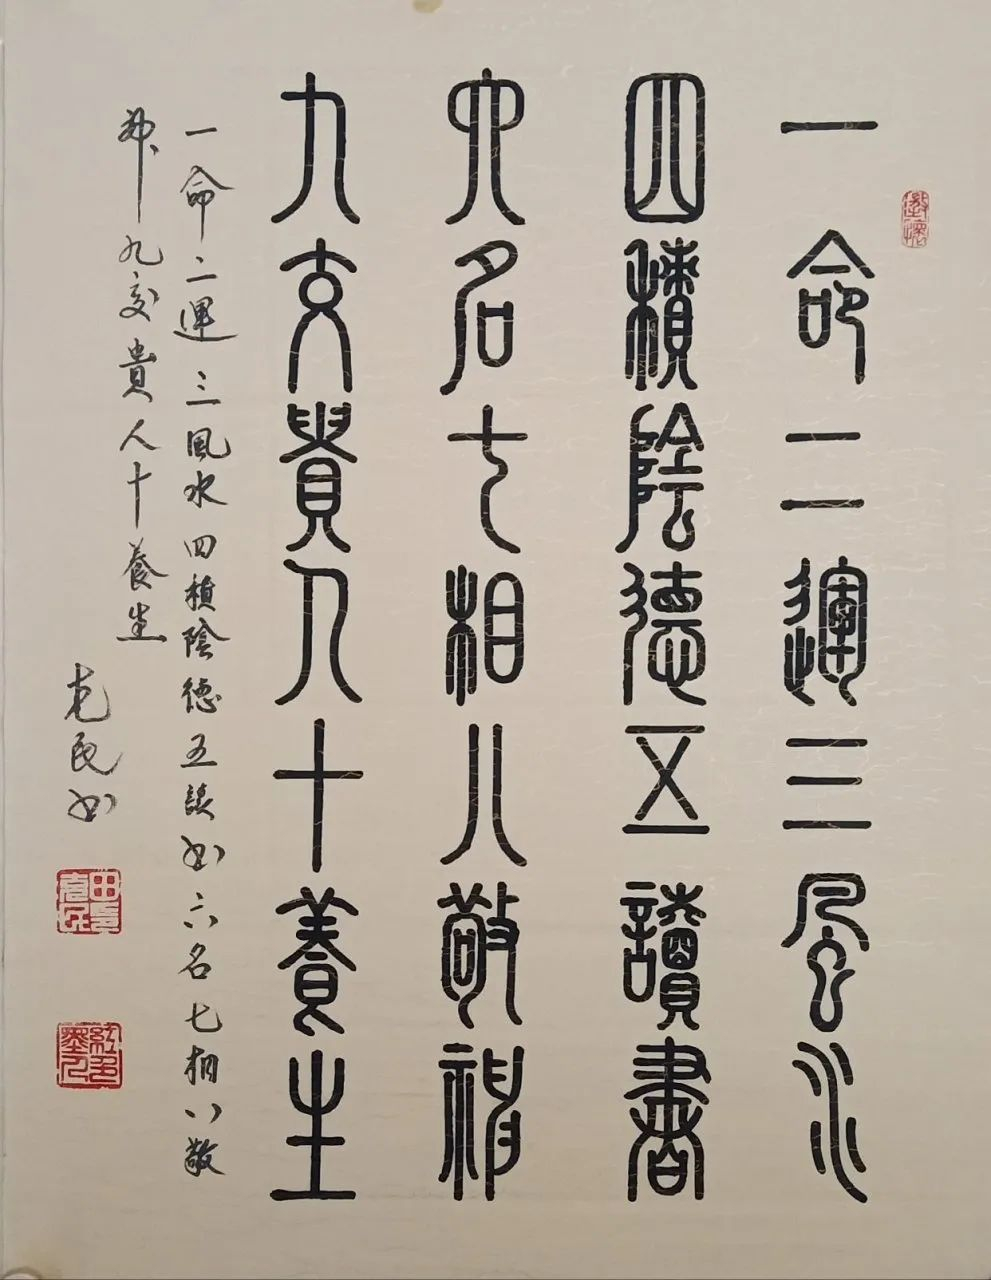 一命二運三風水
四積陰德五讀書
六名七相八敬神
九交貴人十養生
一命二運三風水四積陰德五讀书六名七相八敬
神九交貴人十養生
克民书